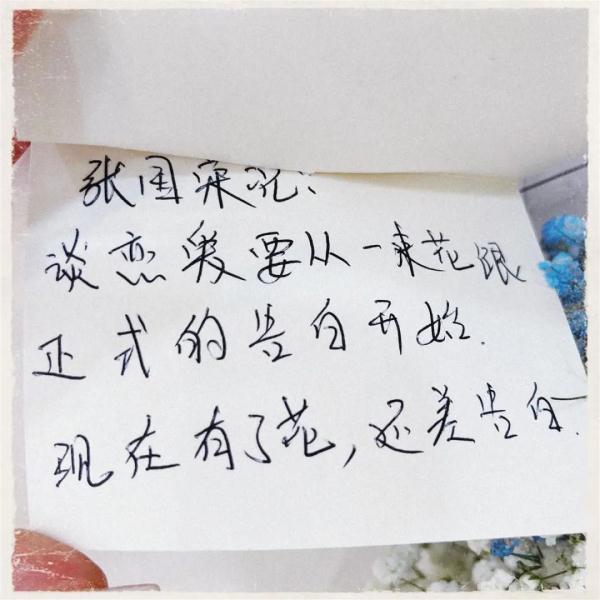 张国荣说:
谈恋爱要从一束花跟
正式的告白开始.
现在有了花,还差告白.